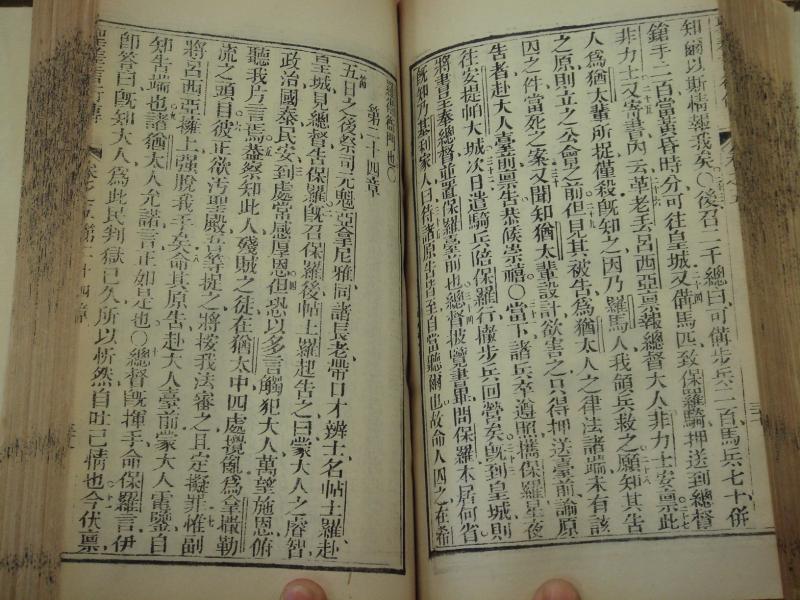 知爾以斯情報我矣○後召二千總曰可備步兵二百馬兵七十併
鎗手二百當黃昏時分可往皇城又備馬匹致保羅騎押送到總督
非力士又寄書內云革老丟呂西亞稟報總督大人非力士安稟此
人爲猶太輩所捉僅殺旣知之因乃羅馬人我領兵救之願知其告
之原則立之公會之前但見其被告爲猶太人之律法諸端未有該
囚之件當死之案又聞知猶太輩設計欲害之只得押送臺前諭原
告者赴大人臺前稟告恭候崇禧○當下諸兵卒遵照攜保羅星夜
往安提帕大城次日遣騎兵陪保羅行撞步兵回營矣旣到皇城則
將書呈奉總督並置保羅臺前也總督披覽書畢問保羅本居何省
旣知乃基利家人曰待諸原告皆至自當聽爾也故命人囚之在希
衙門也○
第二十四章
五日之後祭司元魁亞拿尼雅同諸長老帶口才辨士名帖土羅赴
皇城見總督告保羅旣召保羅後帖土羅起告之曰蒙大人之睿智
政治國泰民安到處當感厚恩但恐以多言觸犯大人萬望施恩俯
聽我片言焉蓋察知此人殘賊之徒在猶太中四處攪亂爲拿撒勒
流之頭目彼正欲汚聖殿吾等捉之將按我法審之且定擬罪惟副
將呂西亞擁上强脫我手矣命其原告赴大人臺前蒙大人電鑒自
知告端也諸猶太人允諾言正如是也○總督旣揮手命保羅言伊
卽答曰旣知大人爲此民判獄已久所以忻然自吐己情也今伏稟
第二十四章